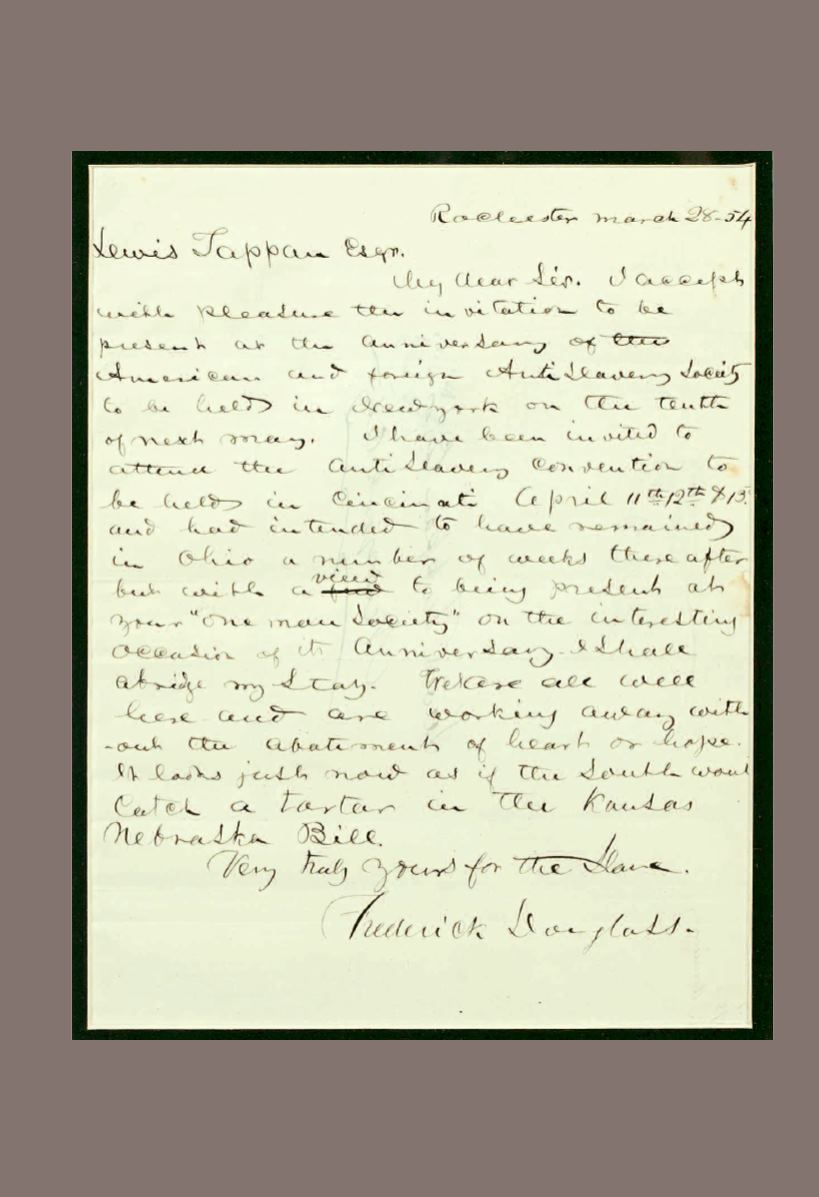 Rochester march 28-54
Lewis Tappan Esqr.
My dear Sir. I accept
with pleasure the invitation to be
present at the anniversary of the
American and foreign Anti Slavery Society
to be held in Newyork on the tenth
of next may. I have been invited to
attend the Anti Slavery Convention to
be held in Cincinati April 11th 12th & 13.
and had intended to have remained
in Ohio a number of weeks thereafter
but with a view to being present at
your "one man Society" on the interesting
occasion of its Anniversary. I Shall
abridge my Stay. We are all well
here and are working away with
-out the abatement of heart or hope.
It looks just now as if the South would
Catch a tartar in the Kansas
Nebraska Bill.
Very truly yours for the Slave.
Frederick Douglass.